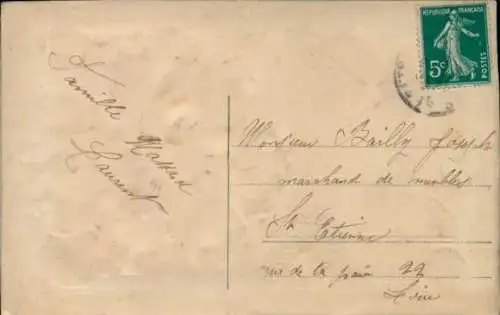 Famille Massard
Laurent
REPUBLIQUE FRANÇAISE
5c
POSTES
Monsieur Bailly Joseph
marchand de meubles
St Etienne
rue de la 22
Loire